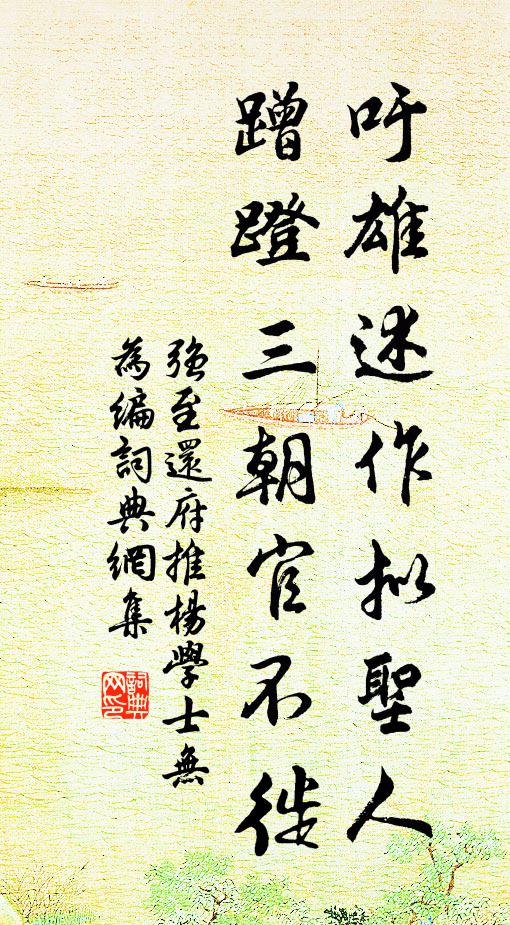 吁雄述作拟聖人
蹭蹬三朝官不徙
強至還府推楊學士無
為編詞典網集
詞典網印